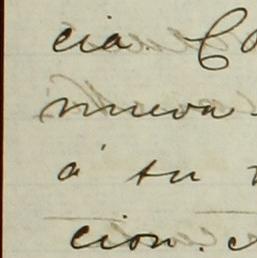 cia.
nueva
á su
cion.